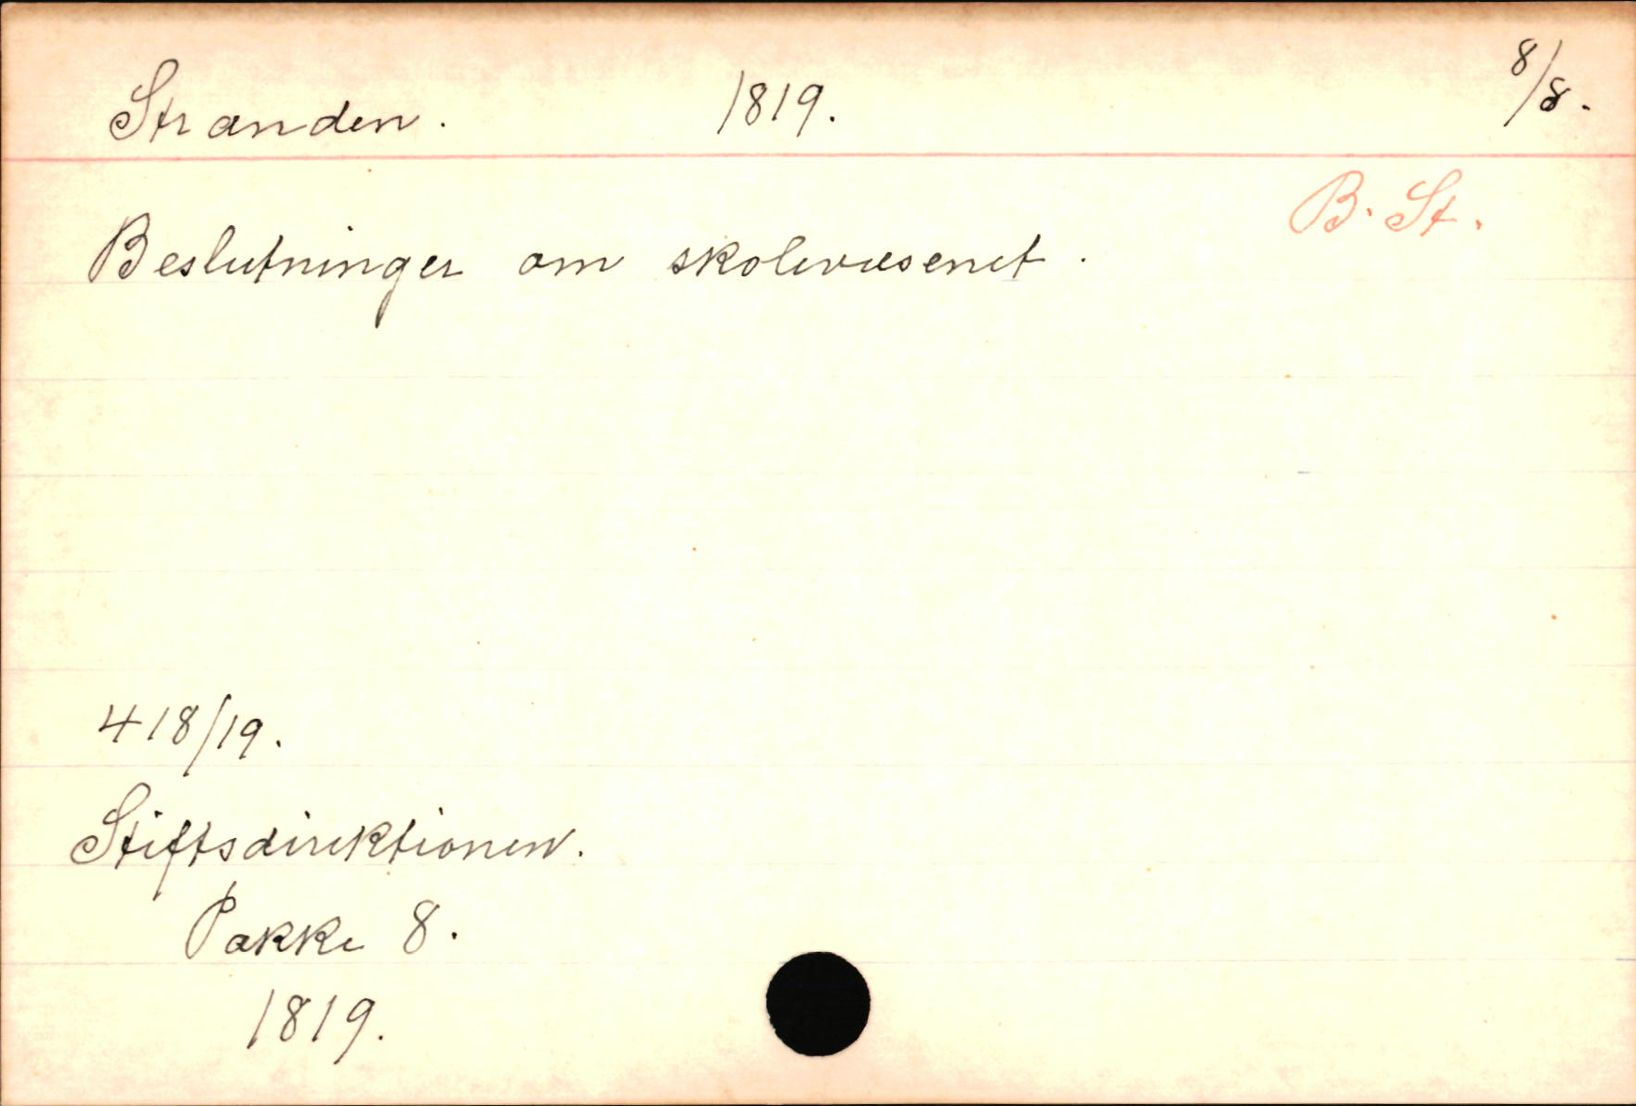 Stranden. 1819. 8/8.
B. St.
Beslutninger om skolevæsenet.
418/19.
Stiftsdirektionen.
Pakke 8.
1819.